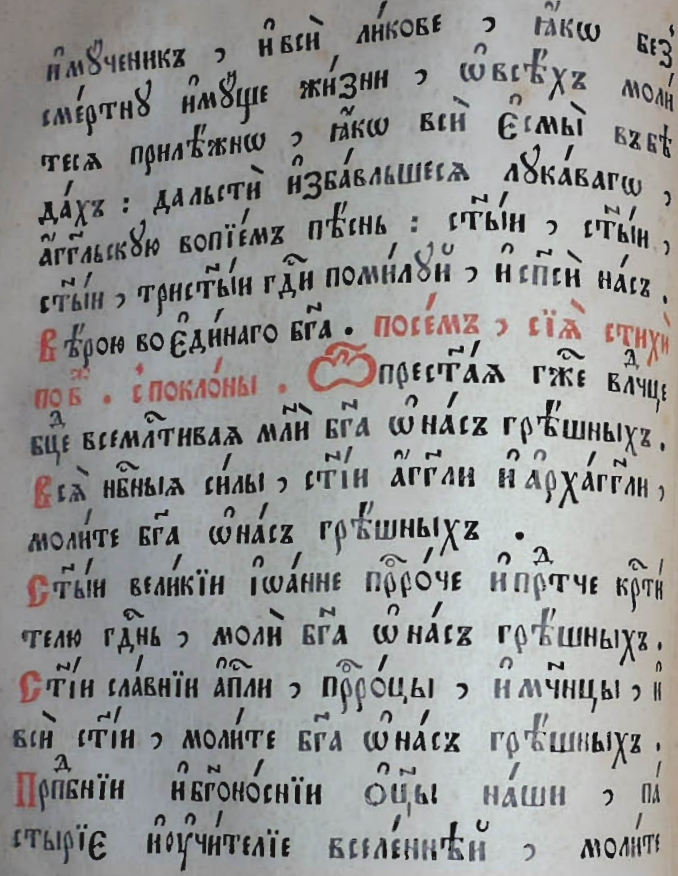 и҆мꙋ́ченикъ , и҆всѝ ли́кове , ꙗ҆́кѡ без̾
сме́ртнꙋ и҆мꙋ́ще жи́зни , ѡ҆всѣ́хъ моли́
тесѧ прилѣ́жнѡ , ꙗ҆́кѡ всѝ є҆смы̀ въбѣ
да́хъ : дальстѝ и҆зба́вльшесѧ лꙋка́вагѡ ,
а҆́гг҃льскꙋю вопїе́мъ пѣ́снь : ст҃ы́и , ст҃ы́и ,
ст҃ы́и , трист҃ы́и гд҃и поми́лꙋй , и҆ сп҃сѝ на́съ .
Вѣ́рою во є҆ди́наго бг҃а . посе́мъ , сїѧ̀ стихѝ
поⷤ в҃ . с̾покло́ны . Ѽ прест҃а́ѧ гж҃е влⷣчце
бцⷣе всемлⷭ҇тиваѧ мл҃и бг҃а ѡ҆ на́съ грѣ́шныхъ .
Всѧ̀ нб҃ныѧ си́лы , ст҃і́и а҆́гг҃ли и҆ а҆рха́гг҃ли ,
моли́те бг҃а ѡ҆ на́съ грѣ́шныхъ .
Ст҃ы́и вели́кїи і҆ѡа́нне прⷪ҇ро́че и҆ прⷣтче крⷭ҇ти́
телю гдⷭ҇нь , молѝ бг҃а ѡ҆ на́съ грѣ́шныхъ .
Ст҃і́и сла́внїи а҆пⷭ҇ли , прⷪ҇ро́цы , и҆ мч҃нцы , и҆
всѝ ст҃і́и , моли́те бг҃а ѡ҆ на́съ грѣ́шныхъ .
Прпⷣбнїи и҆ бг҃оно́снїи ѻ҆ц҃ы на́ши , па́
стырїє и҆ ᲂу҆чи́телїе вселе́ннѣй , моли́те